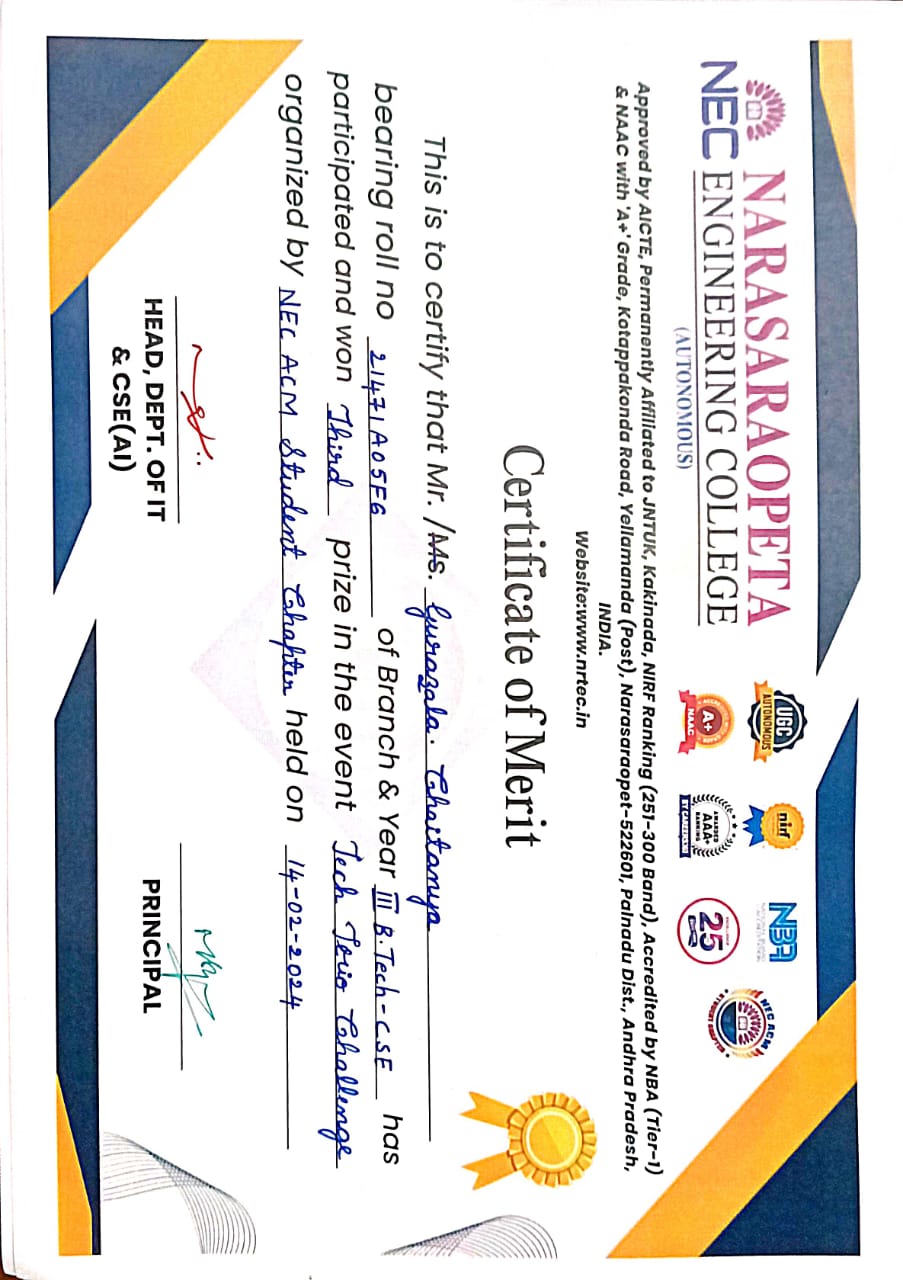 NEC
NARASARAOPETA
ENGINEERING COLLEGE
(AUTONOMOUS)
UGC
AUTONOMOUS
nirf
NBA
NATIONAL BOARD
OF ACCREDITATION
NEC ACM
STUDENT CHAPTER
A+
NAAC
AWARDED
AAA+
RANKING
BY CAREERS360
EXCELLENCE
25
Approved by AICTE, Permanently Affiliated to JNTUK, Kakinada, NIRF Ranking (251-300 Band), Accredited by NBA (Tier-1)
& NAAC with 'A+' Grade, Kotappakonda Road, Yellamanda (Post), Narasaraopet-522601, Palnadu Dist., Andhra Pradesh,
INDIA.
Website:www.nrtec.in
Certificate of Merit
This is to certify that Mr. /Ms. Gurazala. Chaitanya
bearing roll no 21471A05F6 of Branch & Year III B.Tech-CSE has
participated and won Third prize in the event Tech Trio Challenge
organized by NEC ACM Student Chapter held on 14-02-2024
HEAD, DEPT. OF IT
& CSE(AI)
PRINCIPAL